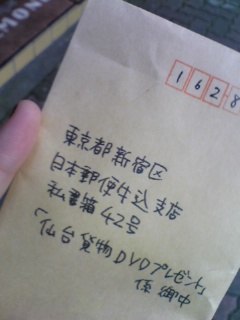 1628
東京都新宿区
日本郵便牛込支店
私書箱42号
「仙台貨物DVDプレゼント」
係御中